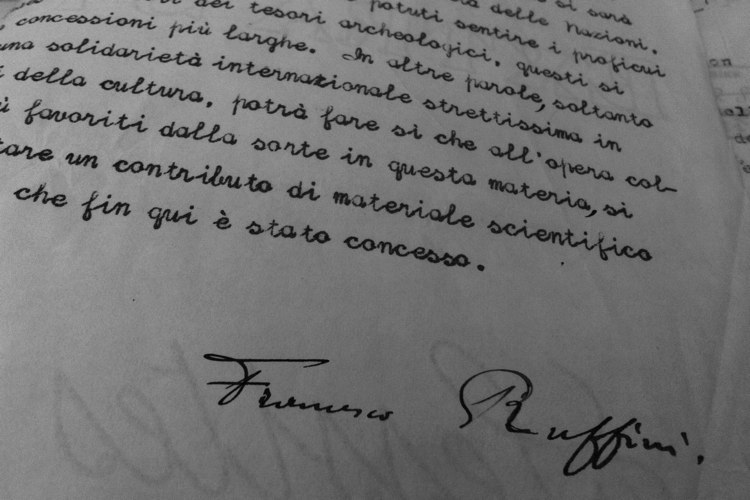 delle Nazioni.
dei tesori archeologici, questi si
potuti sentire i proficui
concessioni più larghe. In altre parole, soltanto
una solidarietà internazionale strettissima in
della cultura, potrà fare sì che all'opera col-
favoriti dalla sorte in questa materia, si
tare un contributo di materiale scientifico
che fin qui è stato concesso.
Francesco Ruffini.